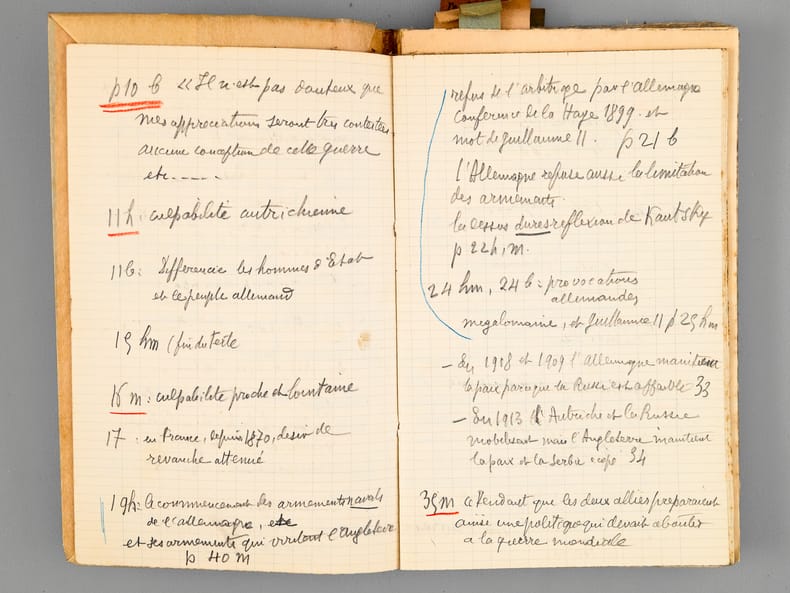 p10 b « Il n'est pas douteux que
mes appreciations seront très contestées
aucune conception de cette guerre
etc-----
11h : culpabilité autrichienne
11b : Differencie les hommes d'Etat
et le peuple allemand
15 hm (fin du texte
m : culpabilite proche et lointaine
17 : en France, depuis 1870, desir de
revanche attenué
19h : le commencement des armements navals
de l'allemagne,
et ses armements qui l'Angleterre
p 40 m
refus de l'arbitrage par l'allemagne
conference de la Haye 1899. et
mot de Guillaume II. p 21 b
l'Allemagne refuse aussi la limitation
des armements.
la dessus dures reflexion de Kautsky
p 22h, m.
24 hm, 24 b : provocations
allemandes
megalomaine, et Guillaume II p 25 hm
– En 1918 et 1909 l'Allemagne maintient
la paix parceque la Russie est affaiblie 33
– En 1913 l'Autriche et la Russie
mobilisent mais l'Angleterre maintient
la paix et la Serbie cède 34
35 m cependant que les deux alliés preparaient
ainsi une politique qui devait aboutir
a la guerre mondiale